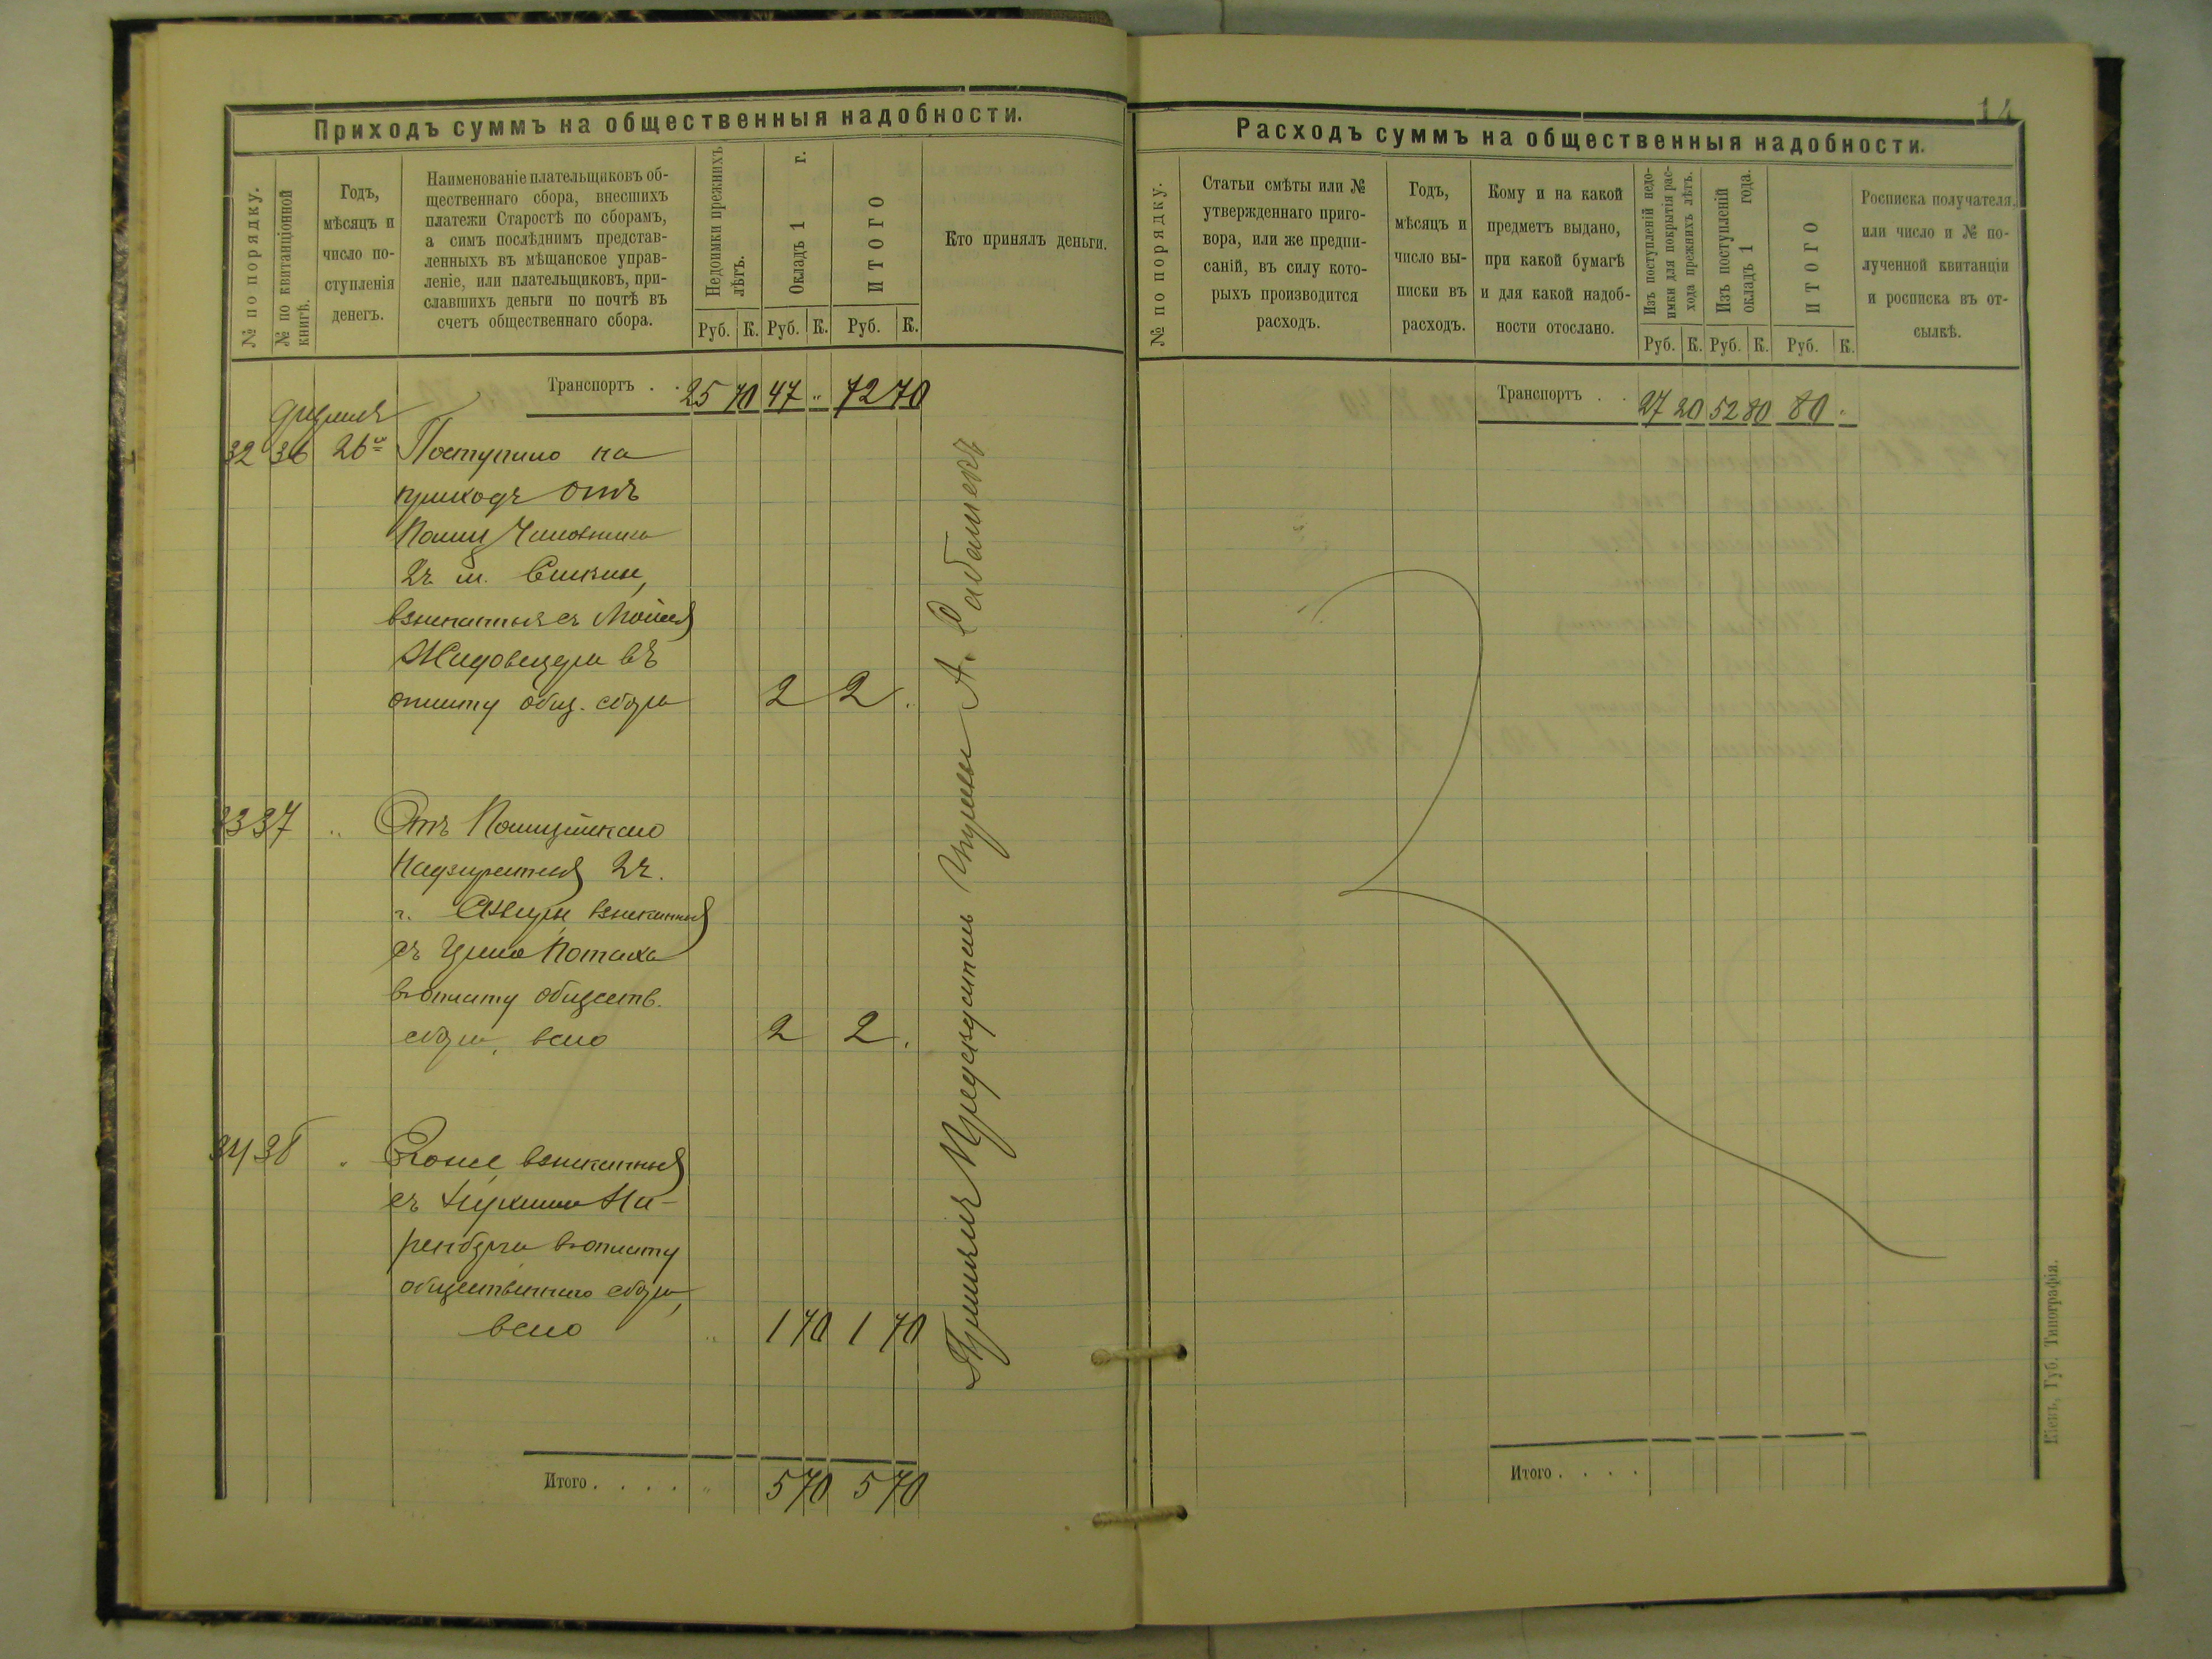 Приходъ суммъ на общественныя надобности.
№ по порядку.
№ по квитанціонной
книгѣ.
Годъ,
мѣсяцъ и
число по-
ступленія
денегъ.
Наименованіе плательщиковъ об-
щественнаго сбора, внесшихъ
платежи Старостѣ по сборамъ,
а симъ послѣднимъ представ-
ленныхъ въ мѣщанское управ-
леніе, или плательщиковъ, при-
славшихъ деньги по почтѣ въ
счетъ общественнаго сбора.
Недоимки прежнихъ
лѣтъ.
Окладъ 1 г.
ИТОГО
Кто принялъ деньги.
Руб. К. Руб. К. Руб. К.
Транспортъ . . 25 70 47 „ 72 70
32 36 26го Поступило на
приходъ отъ
2 ч.
взысканныя съ
въ
оплату общ. сбора 2 2 .
33 37 „ Отъ Полицейскаго
Надзирателя 2 ч.
г. взысканныя
съ Потаха
въ оплату обществ.
сбора, всего 2 2 .
34 38 „ взысканныя
съ
въ оплату
общественнаго сбора,
всего „ 1 70 1 70
Принялъ Предсѣдатель Управы А.
Итого . . . . „ 5 70 5 70
14
Расходъ суммъ на общественныя надобности.
№ по порядку.
Статьи смѣты или №
утвержденнаго приго-
вора, или же предпи-
саній, въ силу кото-
рыхъ производится
расходъ.
Годъ,
мѣсяцъ и
число вы-
писки въ
расходъ.
Кому и на какой
предметъ выдано,
при какой бумагѣ
и для какой надоб-
ности отослано.
Изъ поступленій недо-
имки для покрытія рас-
хода прежнихъ лѣтъ.
Изъ поступленій
окладъ 1 года.
ИТОГО
Росписка получателя,
или число и № по-
лученной квитанціи
и росписка въ от-
сылкѣ.
Руб. К. Руб. К. Руб. К.
Транспортъ . . 27 20 52 80 80 „
Итого . . . .
Кіевъ, Губ. Типографія.